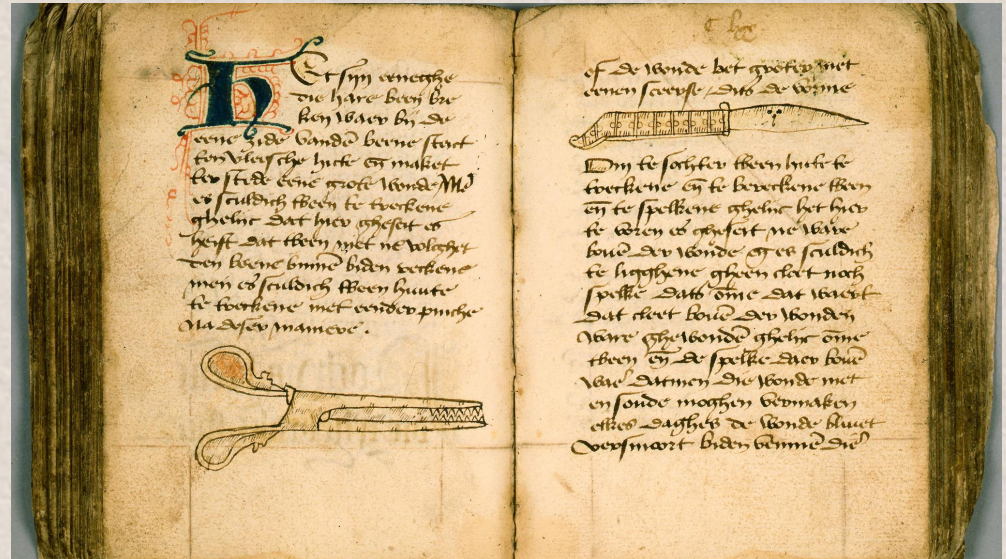 Et sijn eeneghe
die hare been bre
ken waer bi de
eene zide vandē beene stact
ten vleische hute eñ maket
ter stede eene grote wonde Mē
es sculdich tbeen te treckene
ghelijc dat hier gheseit es
heift dat tbeen niet ne volghet
den beene binnē biden reckene
men es sculdich tbeen huute
te treckene met eender pinche
na deser maniere .
of de wonde bet groter met
eenen scerpse dits de vorme
te sochter tbeen hute te
treckene eñ te bereckene tbeen
eñ te spelkene ghelijc het hier
te voren es gheseit ne ware
bouē der wonde es sculdich
te ligghene gheen cleet noch
spelke dats ōme dat waert
dat cleet bouē der wonden
ware ghewondē ghelijc ōme
tbeen eñ de spelke daer bouē
waer datmen die wonde niet
en soude moghen vermaken
elkes daghes de wonde
versmoort biden